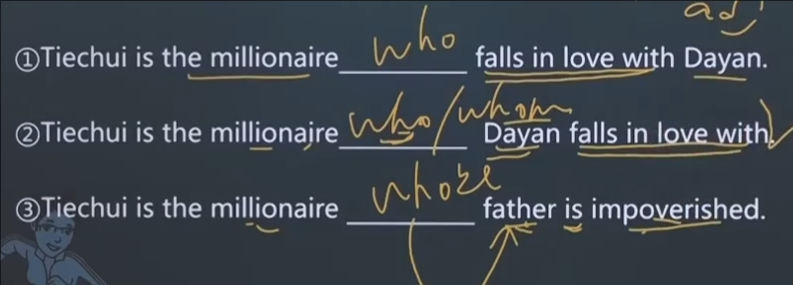 adj
①Tiechui is the millionaire who falls in love with Dayan.
②Tiechui is the millionaire who/whom Dayan falls in love with.
③Tiechui is the millionaire whose father is impoverished.